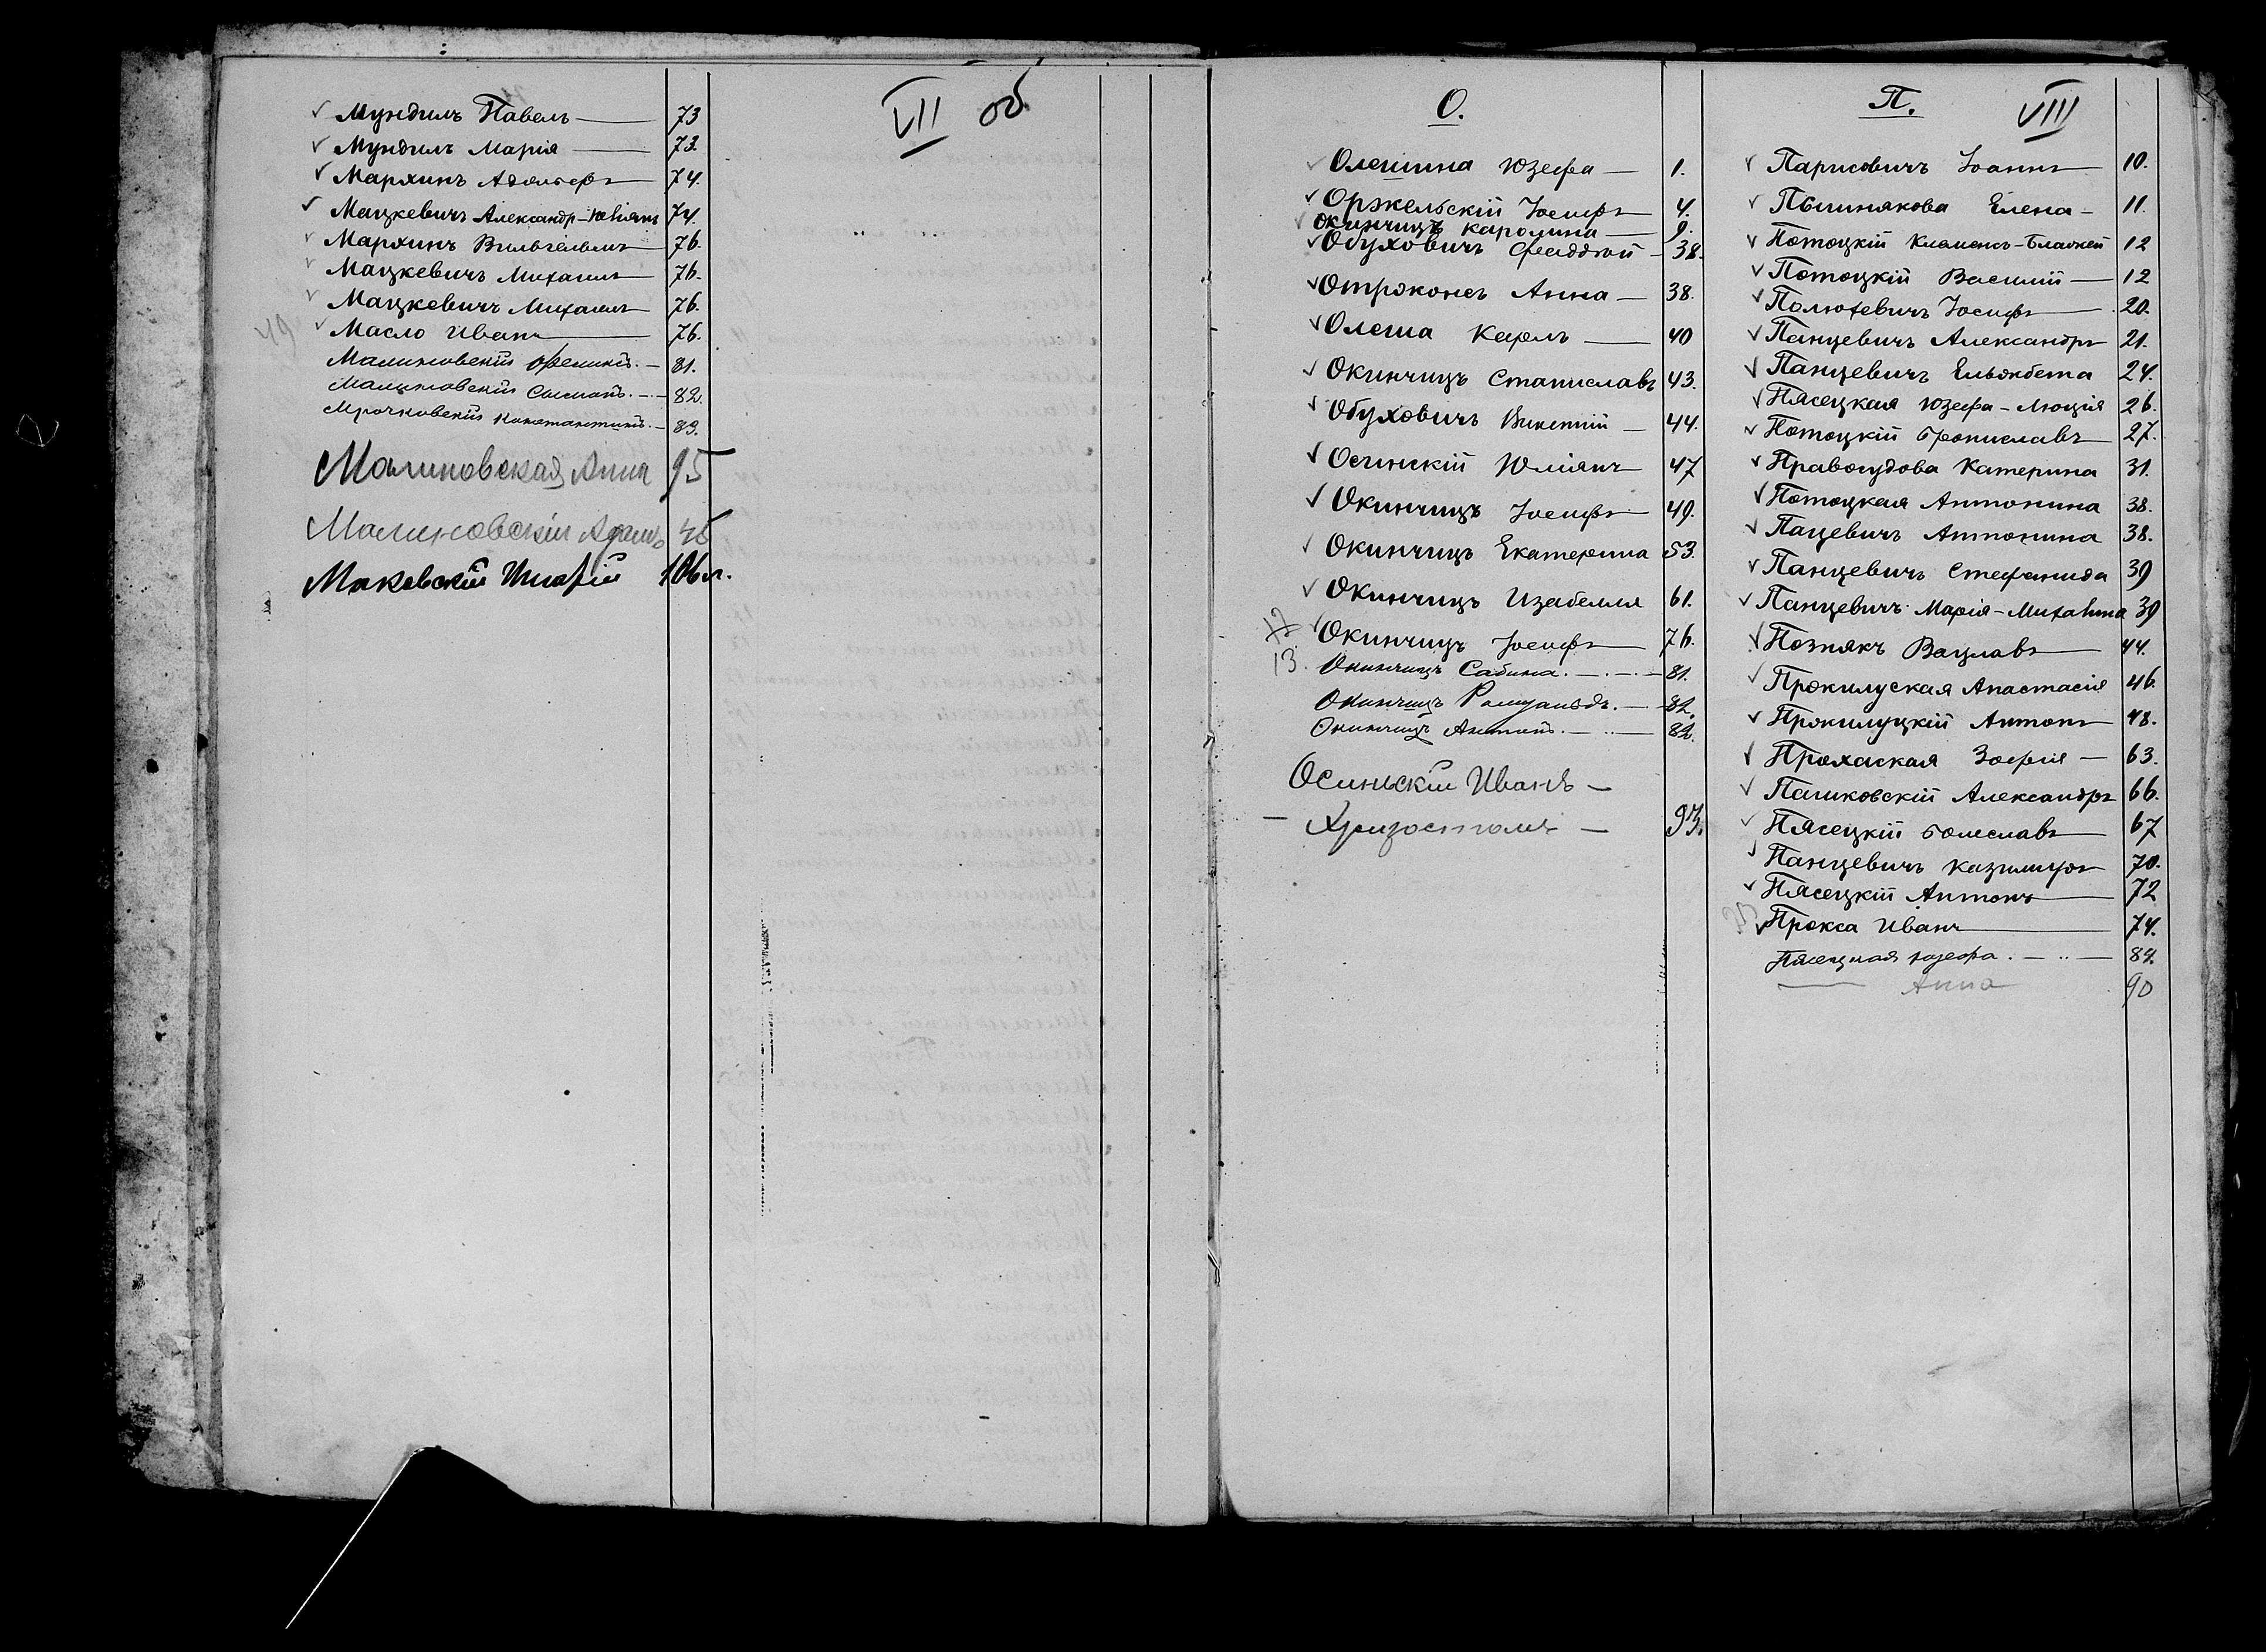 VII об
Мундиль Павелъ — 73
Мундиль Марія — 73.
Мархинъ Адольфъ 74.
Мацкевичъ Александр-Юліянъ 74.
Мархинъ Вильгельмъ 76.
Мацкевичъ Михаилъ 76.
Мацкевичъ Михаилъ 76.
49 Масло Иванъ 76.
Малиновскій Феликсъ. — 81.
Малиновскій 82.
Мрочковскій Константинъ. — 83.
Малиновская Анна 95
Малиновскій
Маковскій 106 л.
О.
Олешина Юзефа — 1.
Оржельскій Іосифъ 4.
Окинчицъ Каролина — 9.
Обуховичъ — 38.
Отроконсъ Анна — 38.
Олеша Кароль — 40
Окинчицъ Станиславъ 43.
Обуховичъ Викентій — 44.
Осинскій Юліянъ 47
Окинчицъ Іосифъ 49.
Окинчицъ Екатерина 53.
Окинчицъ Изабелля 61.
12 Окинчицъ Іосифъ 76.
13. Окинчицъ Сабина. — 81.
Окинчицъ Ромуальдъ. — 82.
Окинчицъ Антонъ. — 82.
Осинскій Иванъ —
— Хризостомъ — 93.
П. VIII
Парисовичъ Іоаннъ 10.
Пышнякова Елена — 11.
Потоцкій 12
Потоцкій Василій — 12
Полютевичъ Іосифъ 20.
Панцевичъ Александръ 21.
Панцевичъ Ельжбета 24.
Пясецкая Юзефа-Люція 26.
Потоцкій Брониславъ 27.
Правосудова Катерина 31.
Потоцкая Антонина 38.
Пацевичъ Антонина 38.
Панцевичъ Стефанида 39
Панцевичъ Марія-Михалина 39
Познякъ Вацлавъ 44.
Прокилуская Анастасія 46.
Прокилуцкій Антонъ 48.
Прохаская Зофія — 63.
Пашковскій Александръ 66.
Пясецкій Болеславъ 67
Панцевичъ Казимиръ 70.
Пясецкій Антонъ 72
Прокса Иванъ 74.
Пясецкая Юзефа. — 82.
— Анна 90